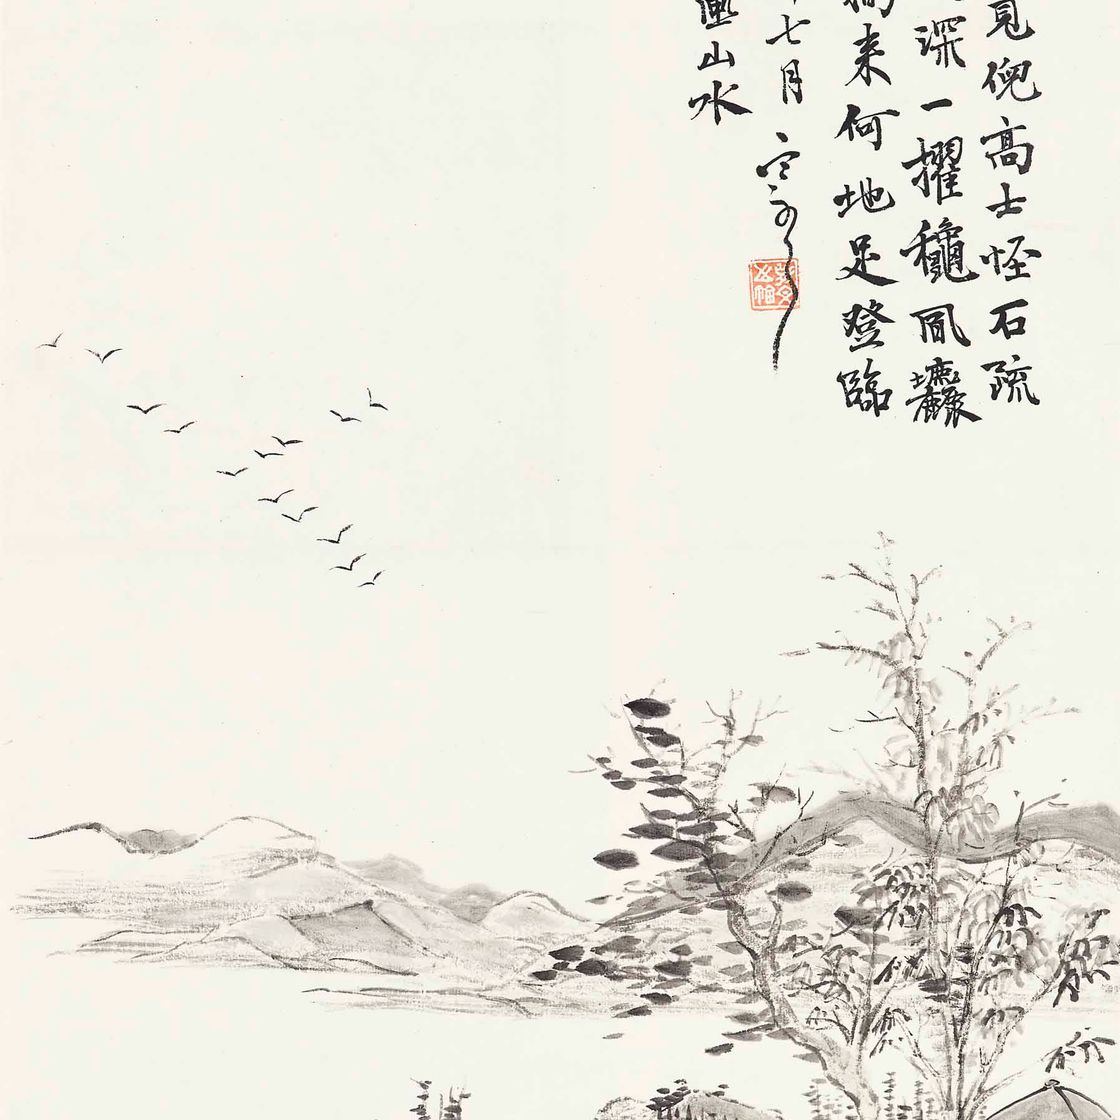 見倪高士怪石疏
深一擢龝凬麤
来何地足登臨
七月
山水